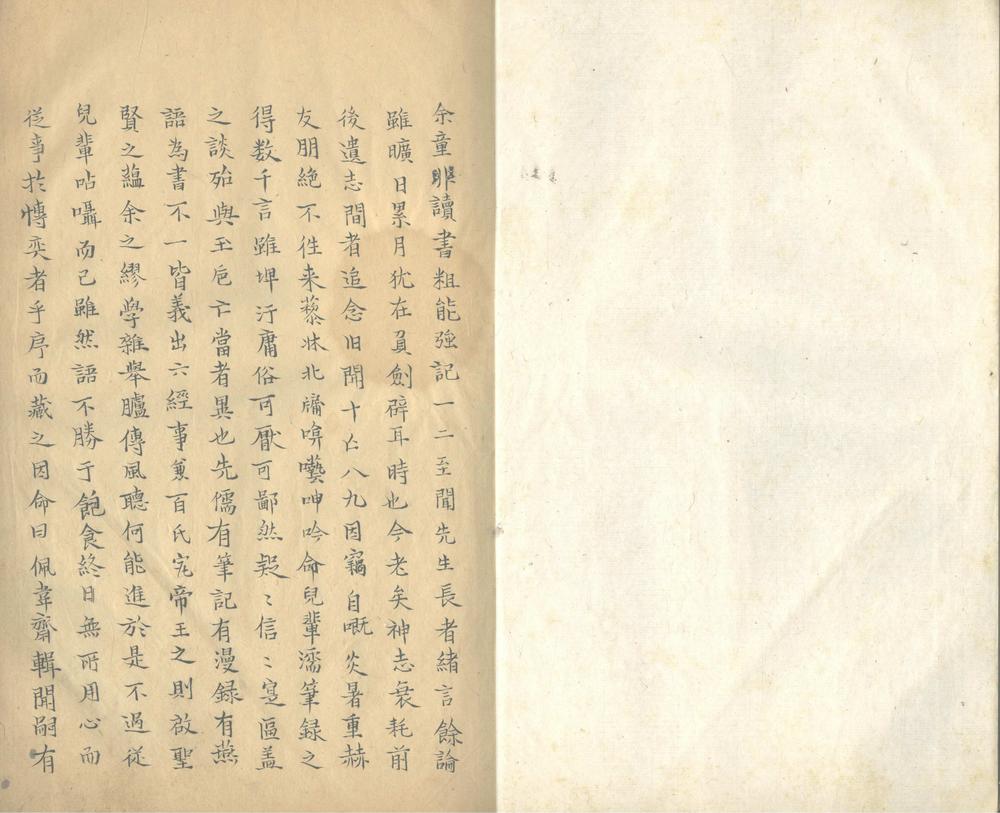 余童丱讀書粗能強記一二至聞先生長者緒言餘論
雖曠日累月犹在負劍辟耳時也今老矣神志衰耗前
後遺志間者追念旧聞十亡八九因竊自嘅炎暑重赫
友朋絶不徃来藜牀北牖唭囈呻吟命兒輩濡筆録之
得数千言雖埤汙庸俗可厭可鄙然疑〻信〻寔區盖
之談殆與至巵亡當者異也先儒有筆記有漫録有燕
語為書不一皆義出六經事兼百氏完帝王之則啟聖
賢之蘊余之繆學雜舉臚傳風聽何能進於是不過従
兒輩呫囁而已雖然語不勝于飽食終日無所用心而
従事於慱奕者乎序而藏之因命曰佩韋齋輯聞嗣有